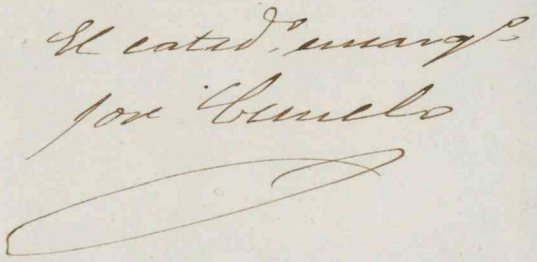 El catedº. encargº
José Cunelo